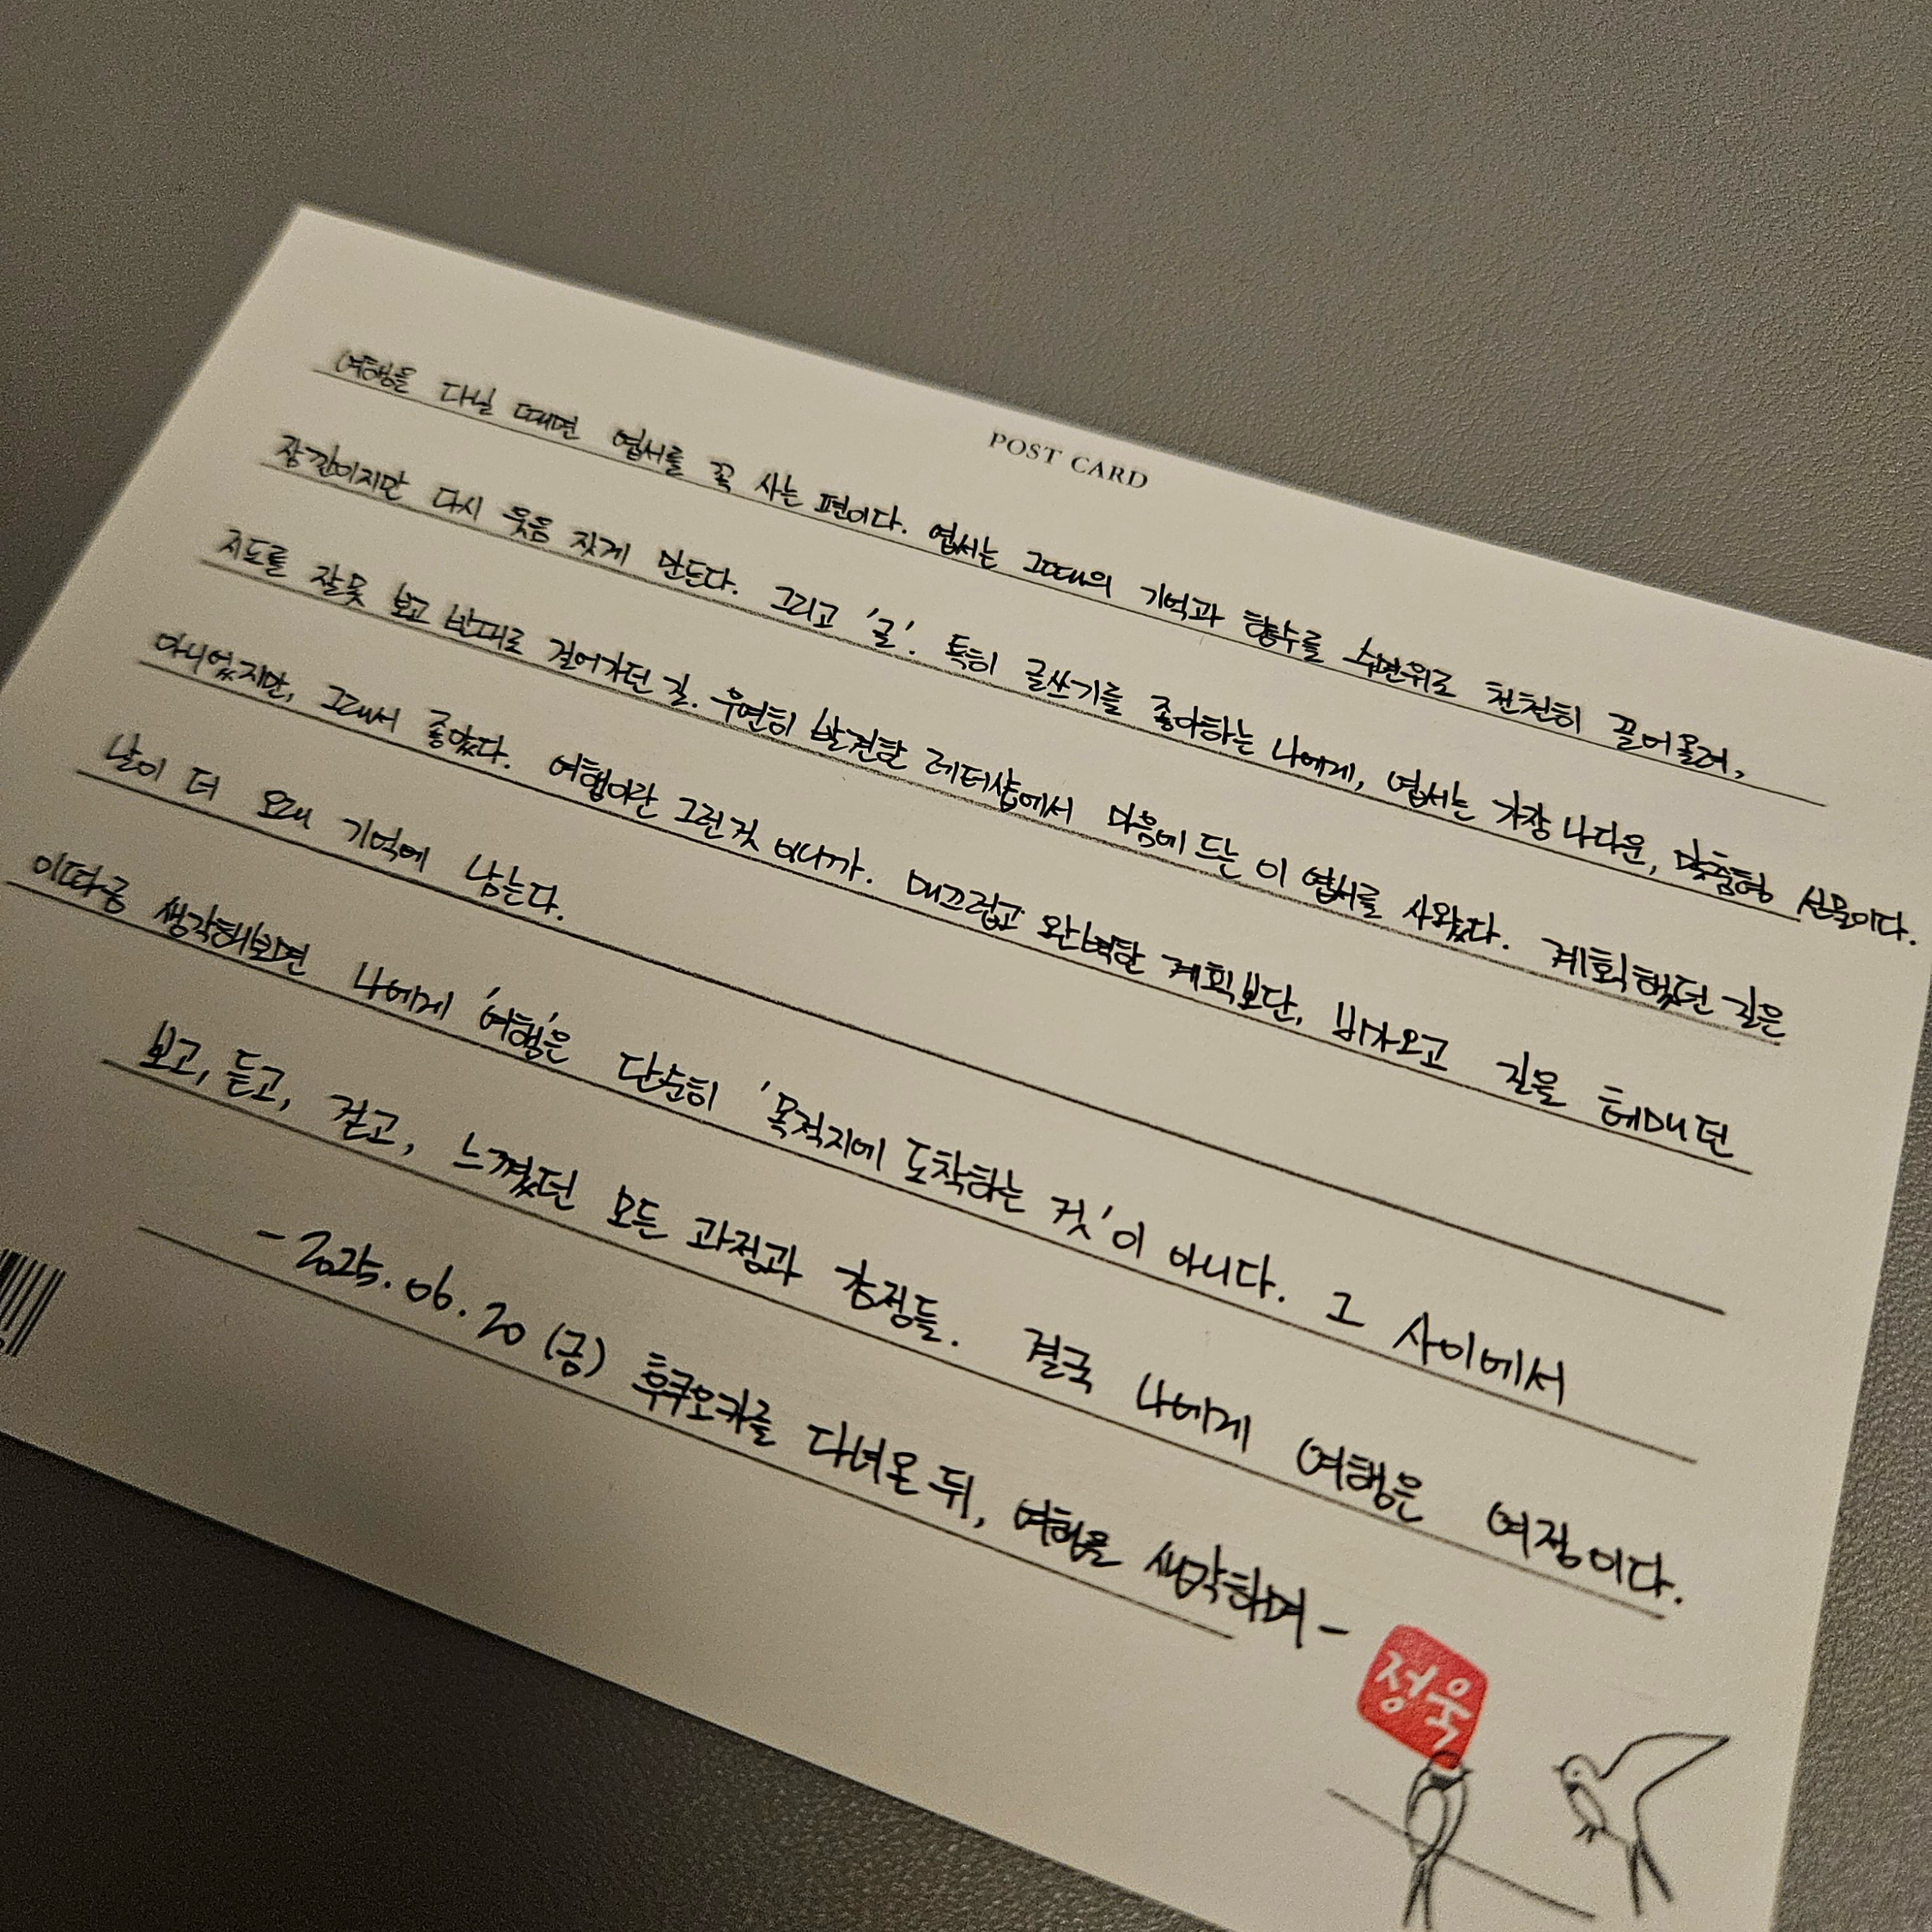 POST CARD
여행을 다닐 때면 엽서를 꼭 사는 편이다. 엽서는 그때의 기억과 향수를 수면위로 천천히 끌어올려,
잠깐이지만 다시 웃음 짓게 만든다. 그리고 '글'. 특히 글쓰기를 좋아하는 나에게, 엽서는 가장 나다운, 맞춤형 선물이다.
지도를 잘못 보고 반대로 걸어가던 길. 우연히 발견한 레터샵에서 마음에 드는 이 엽서를 사왔다. 계획했던 길은
아니었지만, 그래서 좋았다. 여행이란 그런것 이니까. 매끄럽고 완벽한 계획보단, 비가오고 길을 헤매던
날이 더 오래 기억에 남는다.
이따금 생각해보면 나에게 '여행'은 단순히 '목적지에 도착하는 것'이 아니다. 그 사이에서
보고, 듣고, 걷고, 느꼈던 모든 과정과 감정들. 결국 나에게 여행은 여정이다.
- 2025. 06. 20 (금) 후쿠오카를 다녀온 뒤, 여행을 생각하며 -
정욱